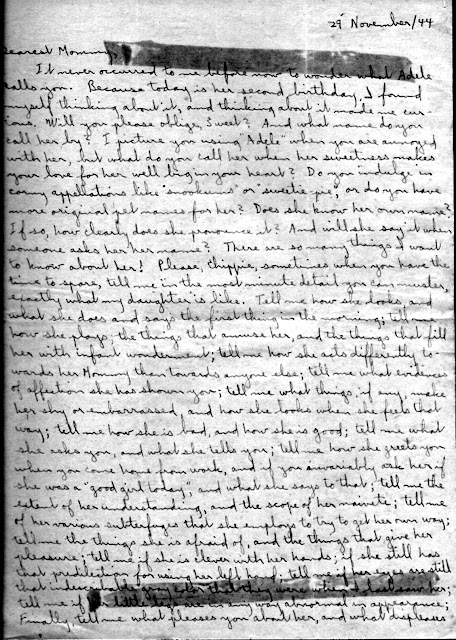 29 November/44
Dearest Mommy,
It never occurred to me before now to wonder what Adele
calls you. Because today is her second birthday, I found
myself thinking about it, and thinking about it made me cur-
ious. Will you please oblige, Sweet? And what name do you
call her by? I picture you using "Adele" when you are annoyed
with her, but what do you call her when her sweetness makes
your love for her well big in your heart? Do you indulge in
corny appellations like "snookums" or "sweetie-pie", or do you have
more original pet names for her? Does she know her own name?
If so, how clearly does she pronounce it? And will she say it when
someone asks her her name? There are so many things I want
to know about her! Please, Chippie, sometimes when you have the
time to spare, tell me in the most minute detail you can muster,
exactly what my daughter is like. Tell me how she looks, and
what she does and says the first thing in the morning; tell me
how she plays; the things that amuse her, and the things that fill
her with infant wonderment; tell me how she acts differently to-
wards her Mommy than towards anyone else; tell me what evidences
of affection she has shown you; tell me what things, if any, make
her shy or embarrassed, and how she looks when she feels that
way; tell me how she is bad, and how she is good; tell me what
she asks you, and what she tells you; tell me how she greets you
when you come home from work, and if you invariably ask her if
she was a "good girl today", and what she says to that; tell me the
extent of her understanding, and the scope of her naivete; tell me
of her various subterfuges that she employs to try to get her own way;
tell me the things she is afraid of, and the things that give her
pleasure; tell me if she is clever with her hands; if she still has
that predilection for using her left hand; tell me if her eyes are still
that indescribable gray color that they were when I last saw her;
tell me if her little toes are in any way abnormal in appearance;
Finally, tell me what pleases you about her, and what displeases